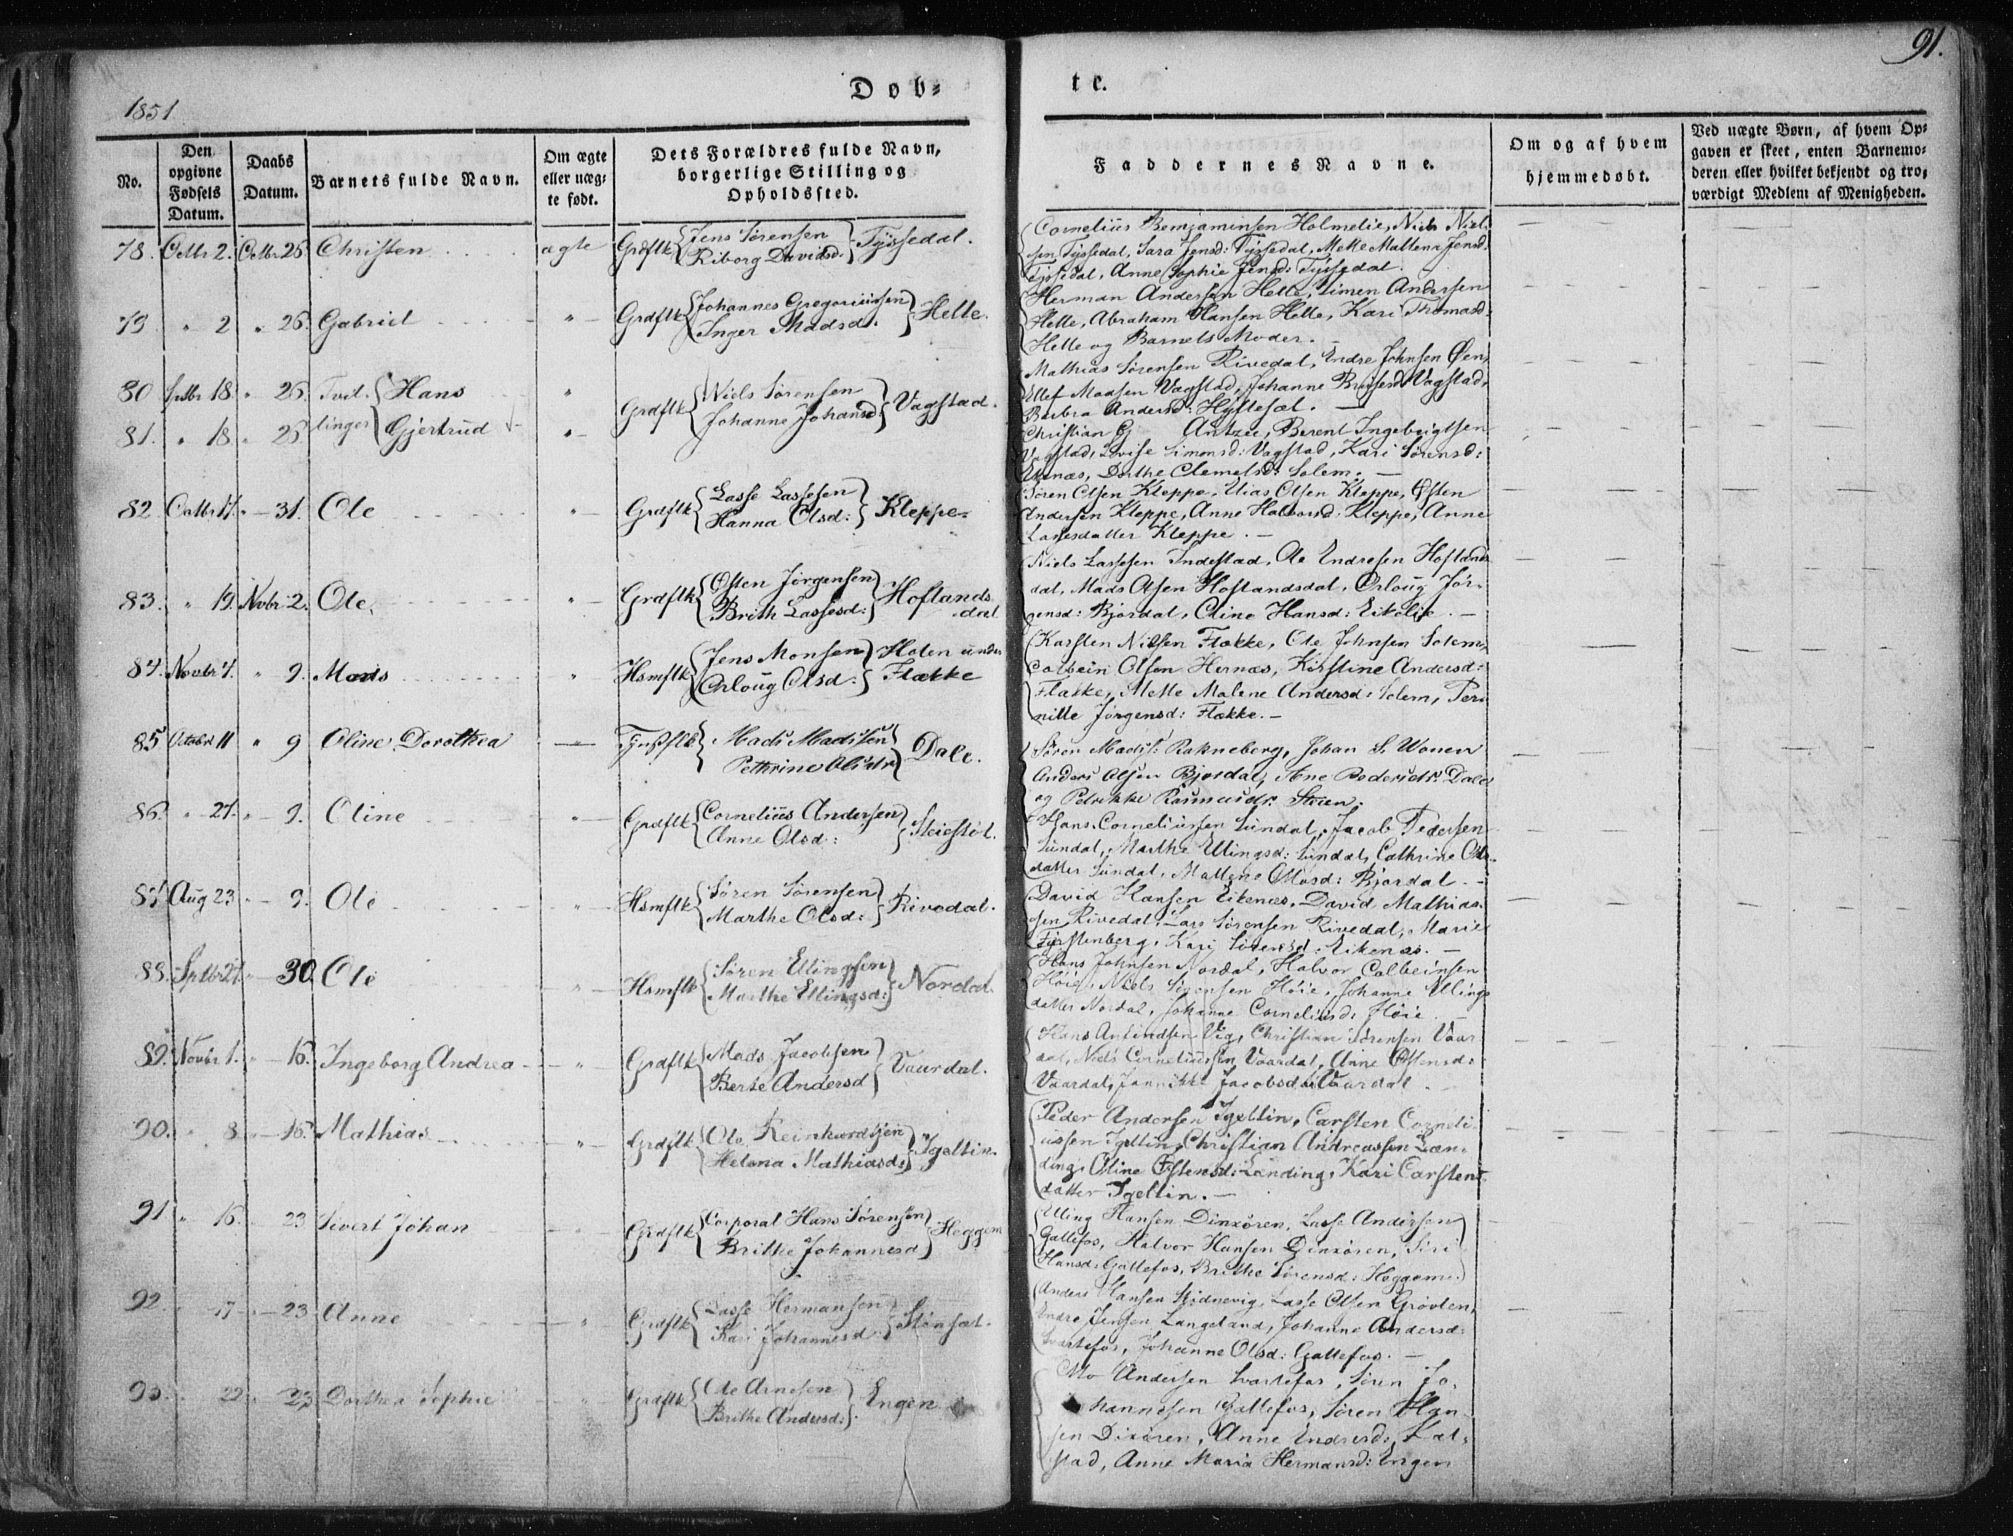 91.
1851
Døb- te.
No.
Den opgivne Fødsels Datum.
Daabs Datum.
Barnets fulde Navn.
Om ægte eller uægte født.
Dets Forældres fulde Navn, borgerlige Stilling og Opholdssted.
Faddernes Navne.
Om og af hvem hjemmedøbt.
Ved uægte Børn, af hvem Opgaven er skeet, enten Barnemoderen eller hvilket bekjendt og troværdigt Medlem af Menigheden.
78. Octbr 2. Octbr. 26. Christen ægte Grdflk Jens Sørensen Riborg Davidsd: Tyssedal.
Cornelius Benjaminsen Holmelie, Niels Niel-
sen Tyssedal, Sara Jensd: Tyssedal, Mette Mallena Jensd:
Tyssedal, Anne Sophie Jensd: Tyssedal.
79 " 2 " 26. Gabriel " Grdflk Johannes Gregoriussen Inger Madsd: Helle.
Herman Andersen Helle, Simen Andersen
Helle, Abraham Hansen Helle, Kari Thomasd:
Helle og Barnets Moder. —
80 Sptbr 18. " 26. Tvil- Hans "
81. " 18. " 26 linger Gjertrud " Grdflk Niels Sørensen Johanne Johansd: Vagstad.
Mathias Sørensen Rivedal, Endre Johnsen Øen,
Ellef Madsen Vagstad, Johanne Vagstad,
Barbra Andersd: —
Christian G Antzee, Berent Ingebrigtsen
Vagstad, Lovise Simonsd: Vagstad, Kari Sørensd:
Dorthe Clemetsd: Solem. —
82 Octbr 17. " 31. Ole " Grdflk Lasse Lassesen Hanna Olsd: Kleppe.
Søren Olsen Kleppe, Elias Olsen Kleppe, Østen
Andersen Kleppe, Anne Halvorsd: Kleppe, Anne
Larsdatter Kleppe. —
83. " 19. Novbr 2. Ole. " Grdflk Østen Jørgensen Brith Lassesd: Hoflands dal
Niels Lassesen Indestad, Ole Endresen Hoflands-
dal, Mads Olsen Hoflandsdal, Orloug Jør-
gensd: Bjordal, Oline Hansd: Eikelie. —
84. Novbr 4. " 9. Mads " Hsmflk Jens Monsen Orloug Olsd: Holen under Flække
Karsten Nilsen Flække, Ole Johnsen Solem,
Colbein Olsen Hernæs, Kirstine Andersd:
Flække, Mette Malene Andersd: Solem, Per-
nille Jørgensd: Flække. —
85 Octobr 11 " 9 Oline Dorothea — Mads Madssen Pethrine Olsdtr Dale.
Søren Madss: Rakneberg, Johan S. Wonen
Anders Olsen Bjordal, Ane Dale
og Petrikke Rasmusdr Steien.
86. " 27. " 9. Oline " Grdflk Cornelius Andersen Anne Olsd:
Hans Corneliussen Sundal, Jacob Pedersen
Sundal, Marthe Ellingsd: Sundal, Cathrine Ols-
datter Sundal, Mallene Olsd: Bjordal. —
87 Aug 23 " 9. Ole " Hsmflk Søren Sørensen Marthe Olsd: Rivedal.
David Hansen Eikenæs, David Mathias-
sen Rivedal, Lars Sørensen Rivedal, Marie
Fürstenberg, Kari Sørensd: Eikenæs. —
88. Sptbr 27. " 30. Ole " Hsmflk Søren Ellingsen Marthe Ellingsd: Nordal.
Hans Johnsen Nordal, Halvor Colbeinsen
Høie, Niels Sørensen Høie, Johanne Ellings-
datter Nordal, Johanne Corneliusd: Høie. —
89. Novbr 1. " 16. Ingeborg Andrea " Grdflk Mads Jacobsen Berte Andersd Vaardal.
Hans Amundsen Vig, Christian Sørensen Vaar-
dal, Niels Corneliussen Vaardal, Anne Østensd:
Vaardal, Jannikke Jacobsdatter Vaardal.
90. " 8 " 16. Mathias " Grdflk Ole Reinhardtsen Helena Mathiasd: Igeltin.
Peder Andersen Igeltin, Carsten Corneli-
ussen Igeltin, Christian Andreassen Læn-
ding, Oline Østensd: Lænding, Kari Carstens-
datter Igeltin. —
91 " 16. " 23 Sivert Johan " Grdflk Corporal Hans Sørensen Brithe Johannesd Heggem
Elling Hansen Dinxøren, Lasse Andersen
Gallefos, Halvor Hansen Dinxøren, Siri
Hansd: Gallefos, Brithe Sørensd: Heggem.
92. " 17 " 23 Anne " Grdflk Lasse Hermansen Kari Johannesd: Stensæt.
Anders Hansen Stednevig, Lasse Olsen Grøvlen,
Endre Jensen Langeland, Johanne Andersd:
Svartefos, Johanne Olsd: Gallefos. —
93. " 22 " 23 Dorthea Sophie " Grdflk Ole Arnesen Brithe Andersd: Engen
Mo Andersen Svartefos, Søren Jo-
hannesen Gallefos, Søren Han-
sen Dixøren, Anne Endresd: Kal-
stad, Anne Maria Hermansd: Engen